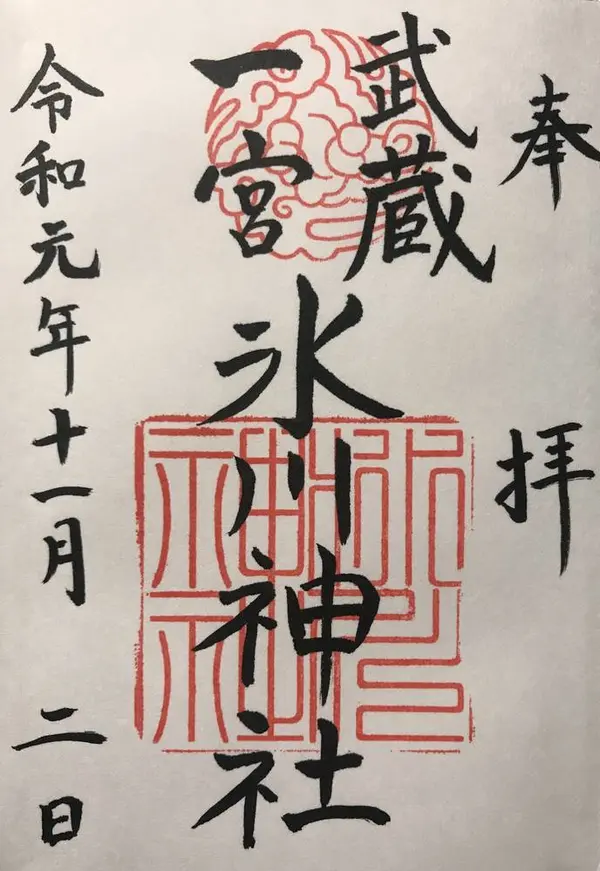 奉拝
武蔵
一宮
氷川神社
令和元年十一月二日
氷川神社